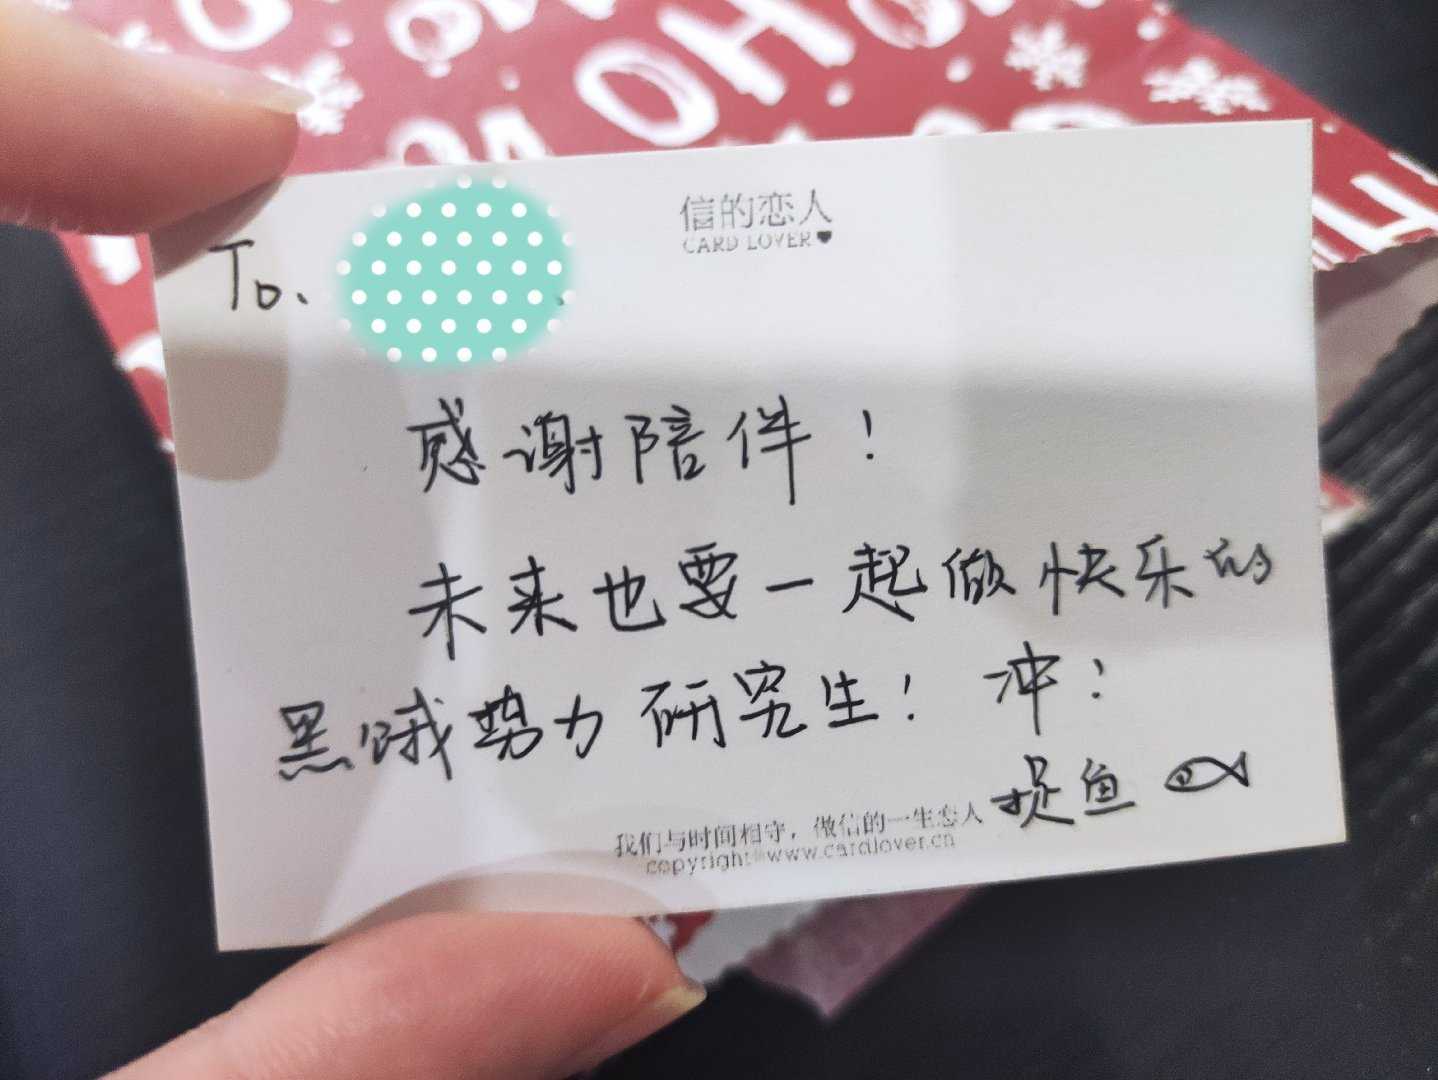 HO
信的恋人
CARD LOVER
To.
感谢陪伴!
未来也要一起做快乐的
黑哦势力研究生! 冲!
捉鱼
我们与时间相守,做信的一生恋人
copyright@www.cardlover.cn